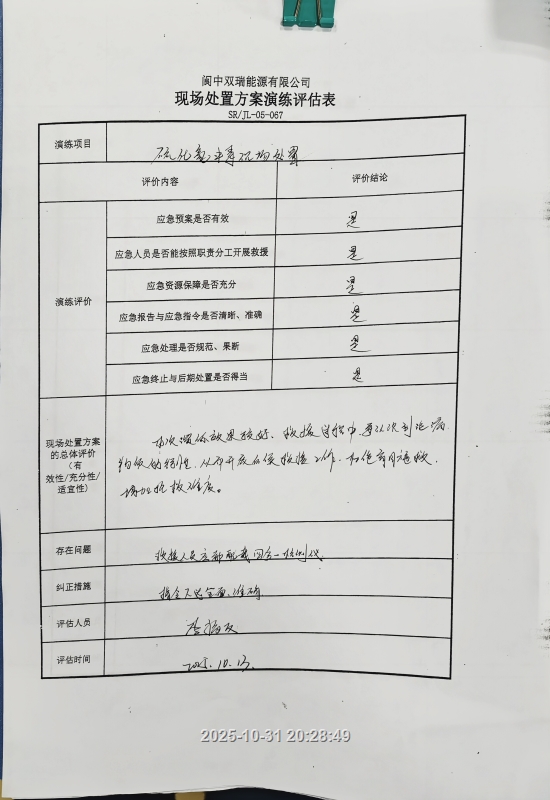 阆中双瑞能源有限公司
现场处置方案演练评估表
SR/JL-05-067
演练项目
硫化氢中毒现场处置
评价内容 评价结论
演练评价
应急预案是否有效 是
应急人员是否能按照职责分工开展救援 是
应急资源保障是否充分 是
应急报告与应急指令是否清晰、准确 是
应急处理是否规范、果断 是
应急终止与后期处置是否得当 是
现场处置方案
的总体评价
（有
效性/充分性/
适宜性）
本次演练效果较好、救援过程中
的特性，从而开展后续救援工作，
增加抢救难度。
存在问题
救援人员 配戴四合一检测仪
纠正措施
指令下达全面、准确
评估人员
评估时间
2025.10.13.
2025-10-31 20:28:49